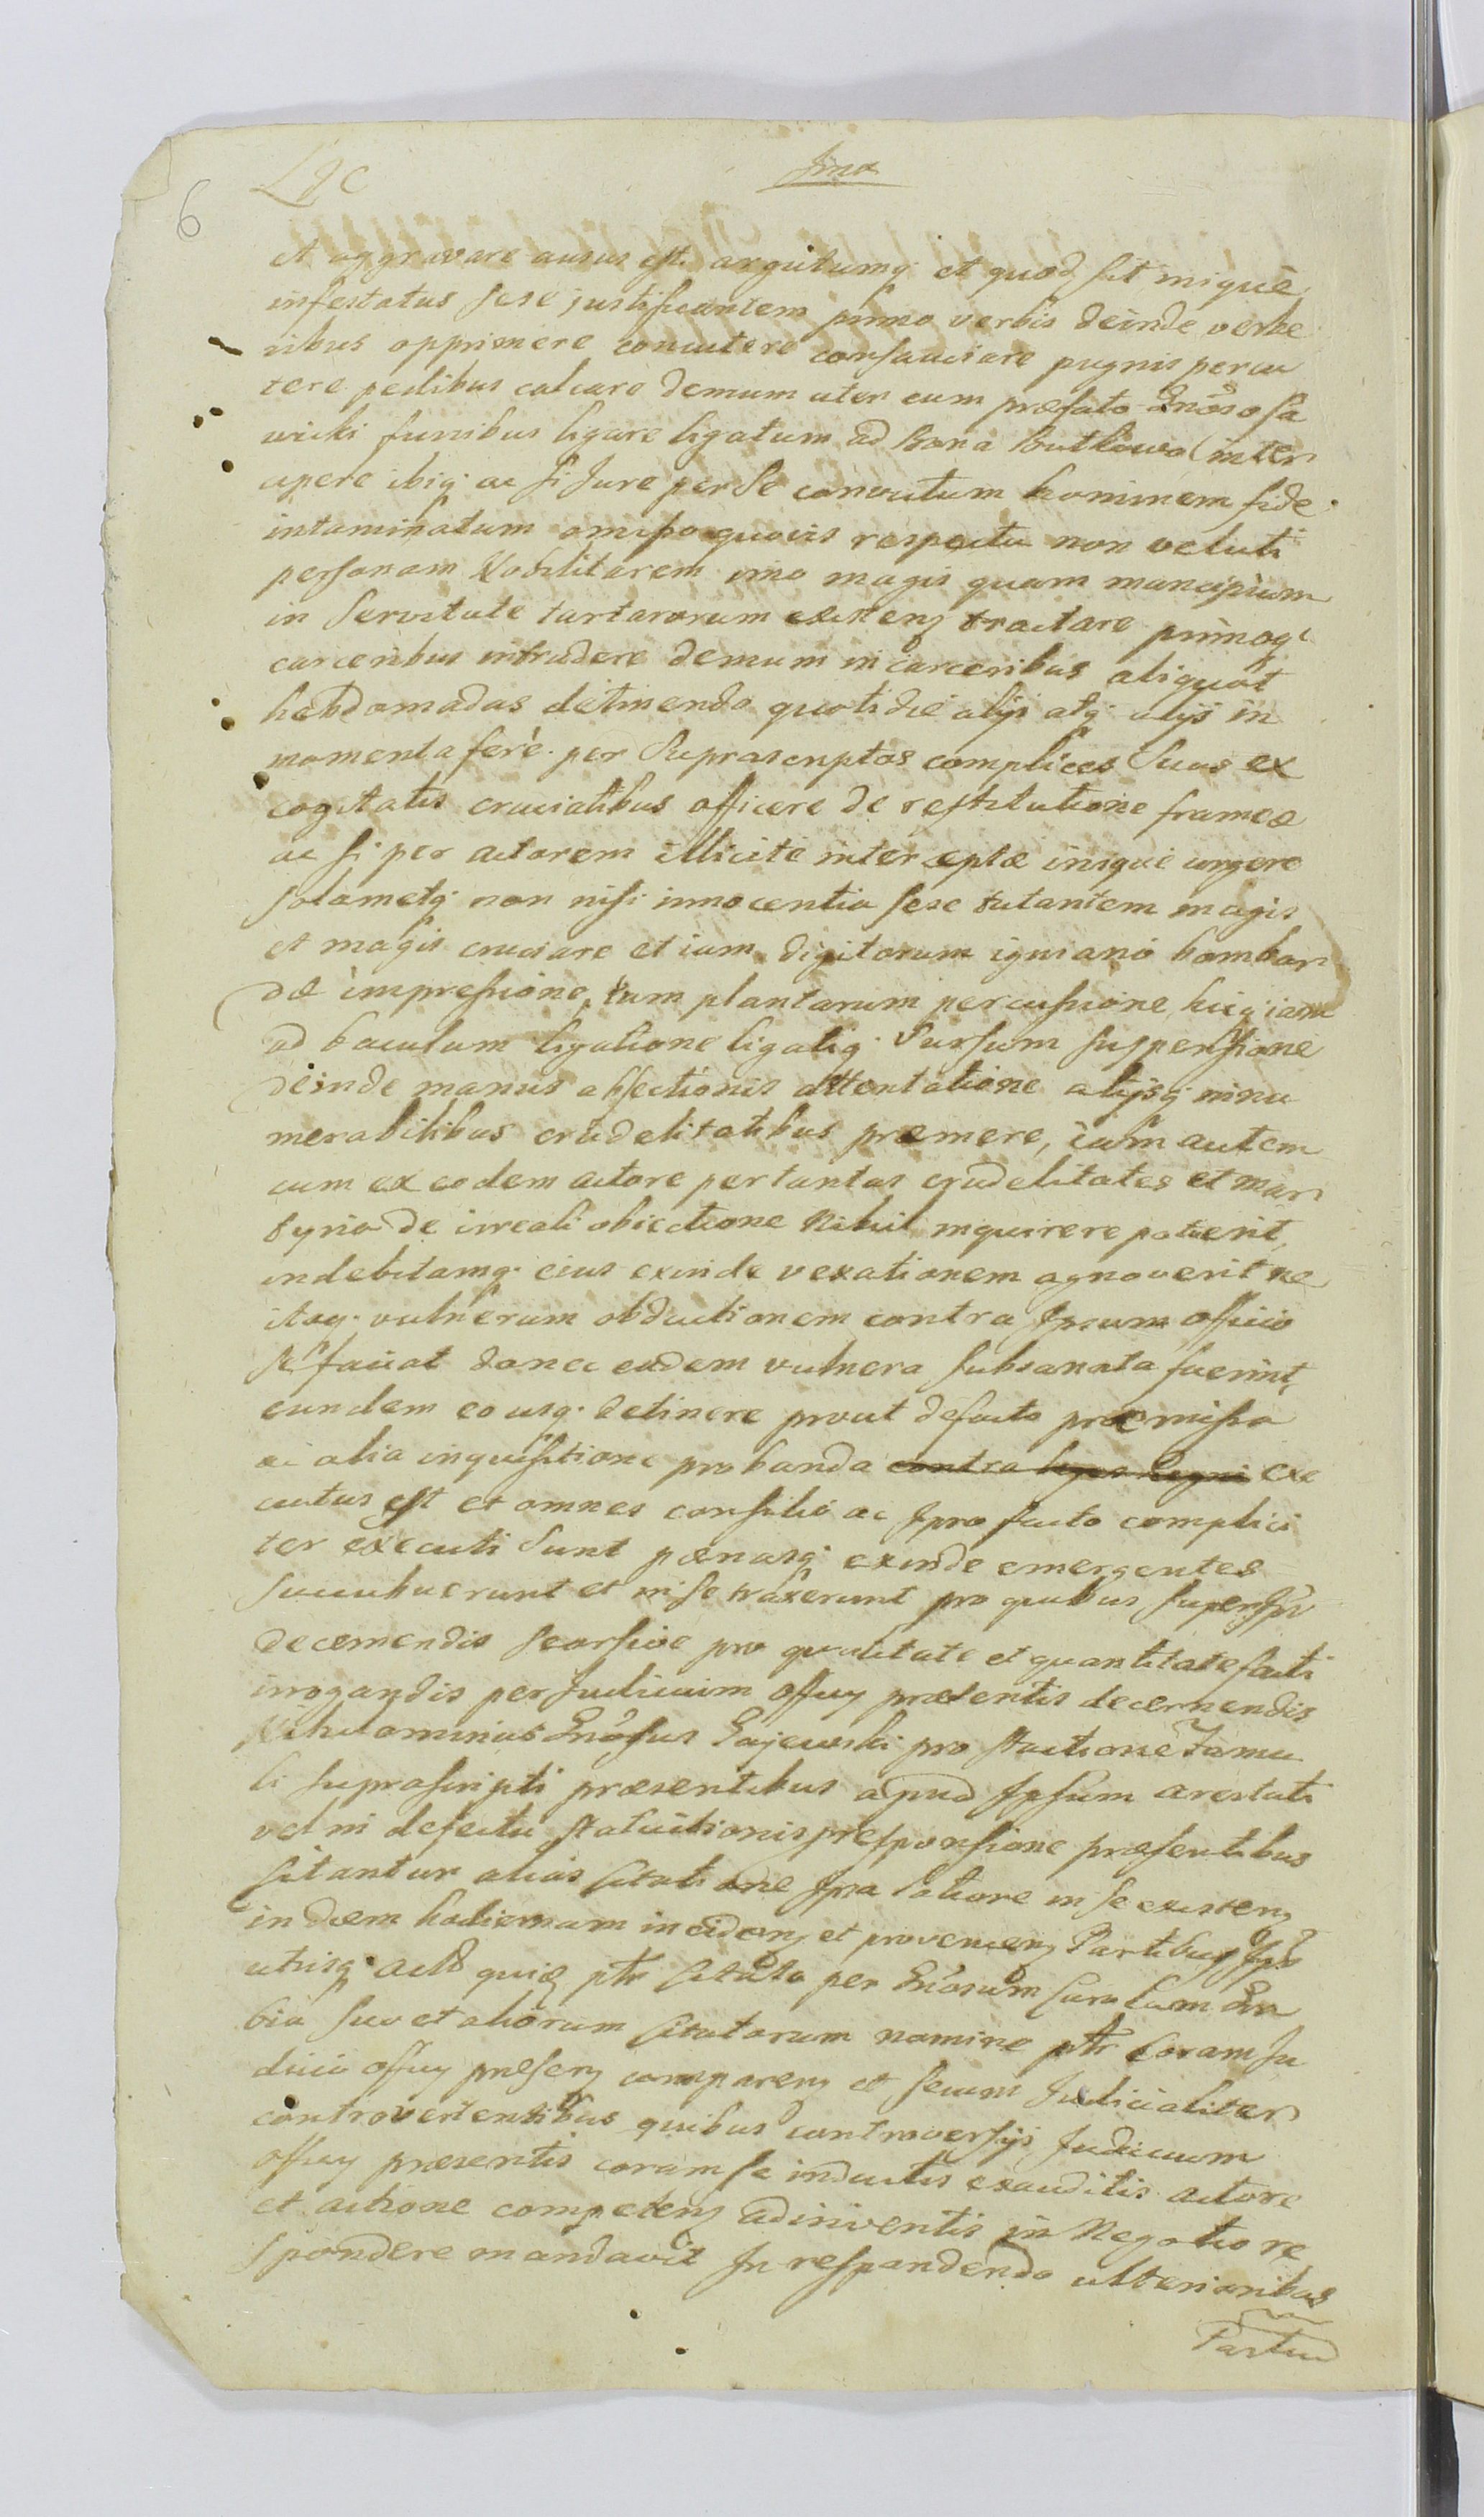 6
et aggravare ausus est argutumq; et quod sit inique
infestatus sese justificantem primo verbis deinde verbe
ribus opprimere concutere consauciare pugnis percu
tere pedibus calcare demum uter eum præfato Gnoso Sa
wicki funibus ligare ligatum ad bona Butkowo inter
cipere ibiq; ac si Jure per se convictum hominem fide
intaminatum omisso quovis respectu non veluti
personam Nobilitarem imo magis quam mancipium
in Servitute tartarorum existen tractare primoq;
carceribus intrudere demum in carceribus aliquot
hebdomadas detinendo quotidie alys atq; alys in
momenta ferè per Suprascriptos complices Suos ex
cogitatis cruciatibus afficere de restitutione frameæ
ac si per actorem illicite interceptæ inique urgere
solametq; non nisi innocentia sese tutantem magis
et magis cruciare et iam digitorum igniario bombar
dæ impressione, tum plantarum percussione, hicq; iam
ad baculum ligatione ligatiq; Sursum suspensione
deinde manus abscectionis attentatione alysq; innu
merabilibus crudelitatibus præmere, iam autem
cum ex eodem actore per tantas crudelitates et mar
tyria de irreali obiectione Nihil inquirere potuerit,
indebitamq; eius exinde vexationem agnoverit ne
itaq; vulnerum obductionem contra Ipsum officio
se faciat donec eadem vulnera subsanata fuerint,
eundem eo usq; detinere prout defacto præmissa
ac alia inquisitione probanda contra leges Regni exe
cutus est et omnes consilio ac Ipso facto complici
ter executi Sunt pænasq; exinde emergentes
succubuerunt et in se traxerunt pro quibus super
decernendis seorsive pro qualitate et quantitate facti
irrogandis per Judicium offcy præsentis decernendis
Nihilominus Gnosus Gajewski pro statione Famu
li suprascripti præsentibus apud Ipsum arestati
vel in defectu statuitionis responsione præsentibus
citantur alias Citatione Ipsa latiore in se existen
in diem hodiernam inciden et provenien Partibus Ips
utrisq; actō quiē ptr Citato per Gnosum
bia suo et aliorum Citatorum nomine ptr Coram Ju
dicio offcy præsen comparen et secum Judicialiter
controvertentibus quibus controversys Judicium
offcy præsentis coram se inductis exauditis actore
et actione competen adinventis in Negotio re
spondere mandavit In respondendo ulterioribus
Partiu